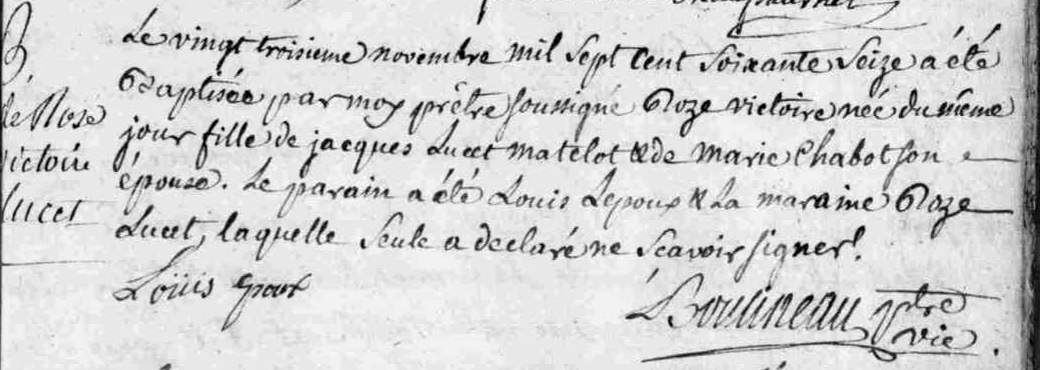 Le vingt troisieme novembre mil sept cent soixante seize a été
B
Baptisée par moy prêtre soussigné Roze victoire née du même
de Rose
jour fille de jacques Lucet matelot & de marie Chabot son
victoire
épouse. Le parain a été Louis Lepoux & La maraine Roze
Lucet
Lucet, laquelle seule a declaré ne scavoir signer.
Louis Epoux
ptre
vic.